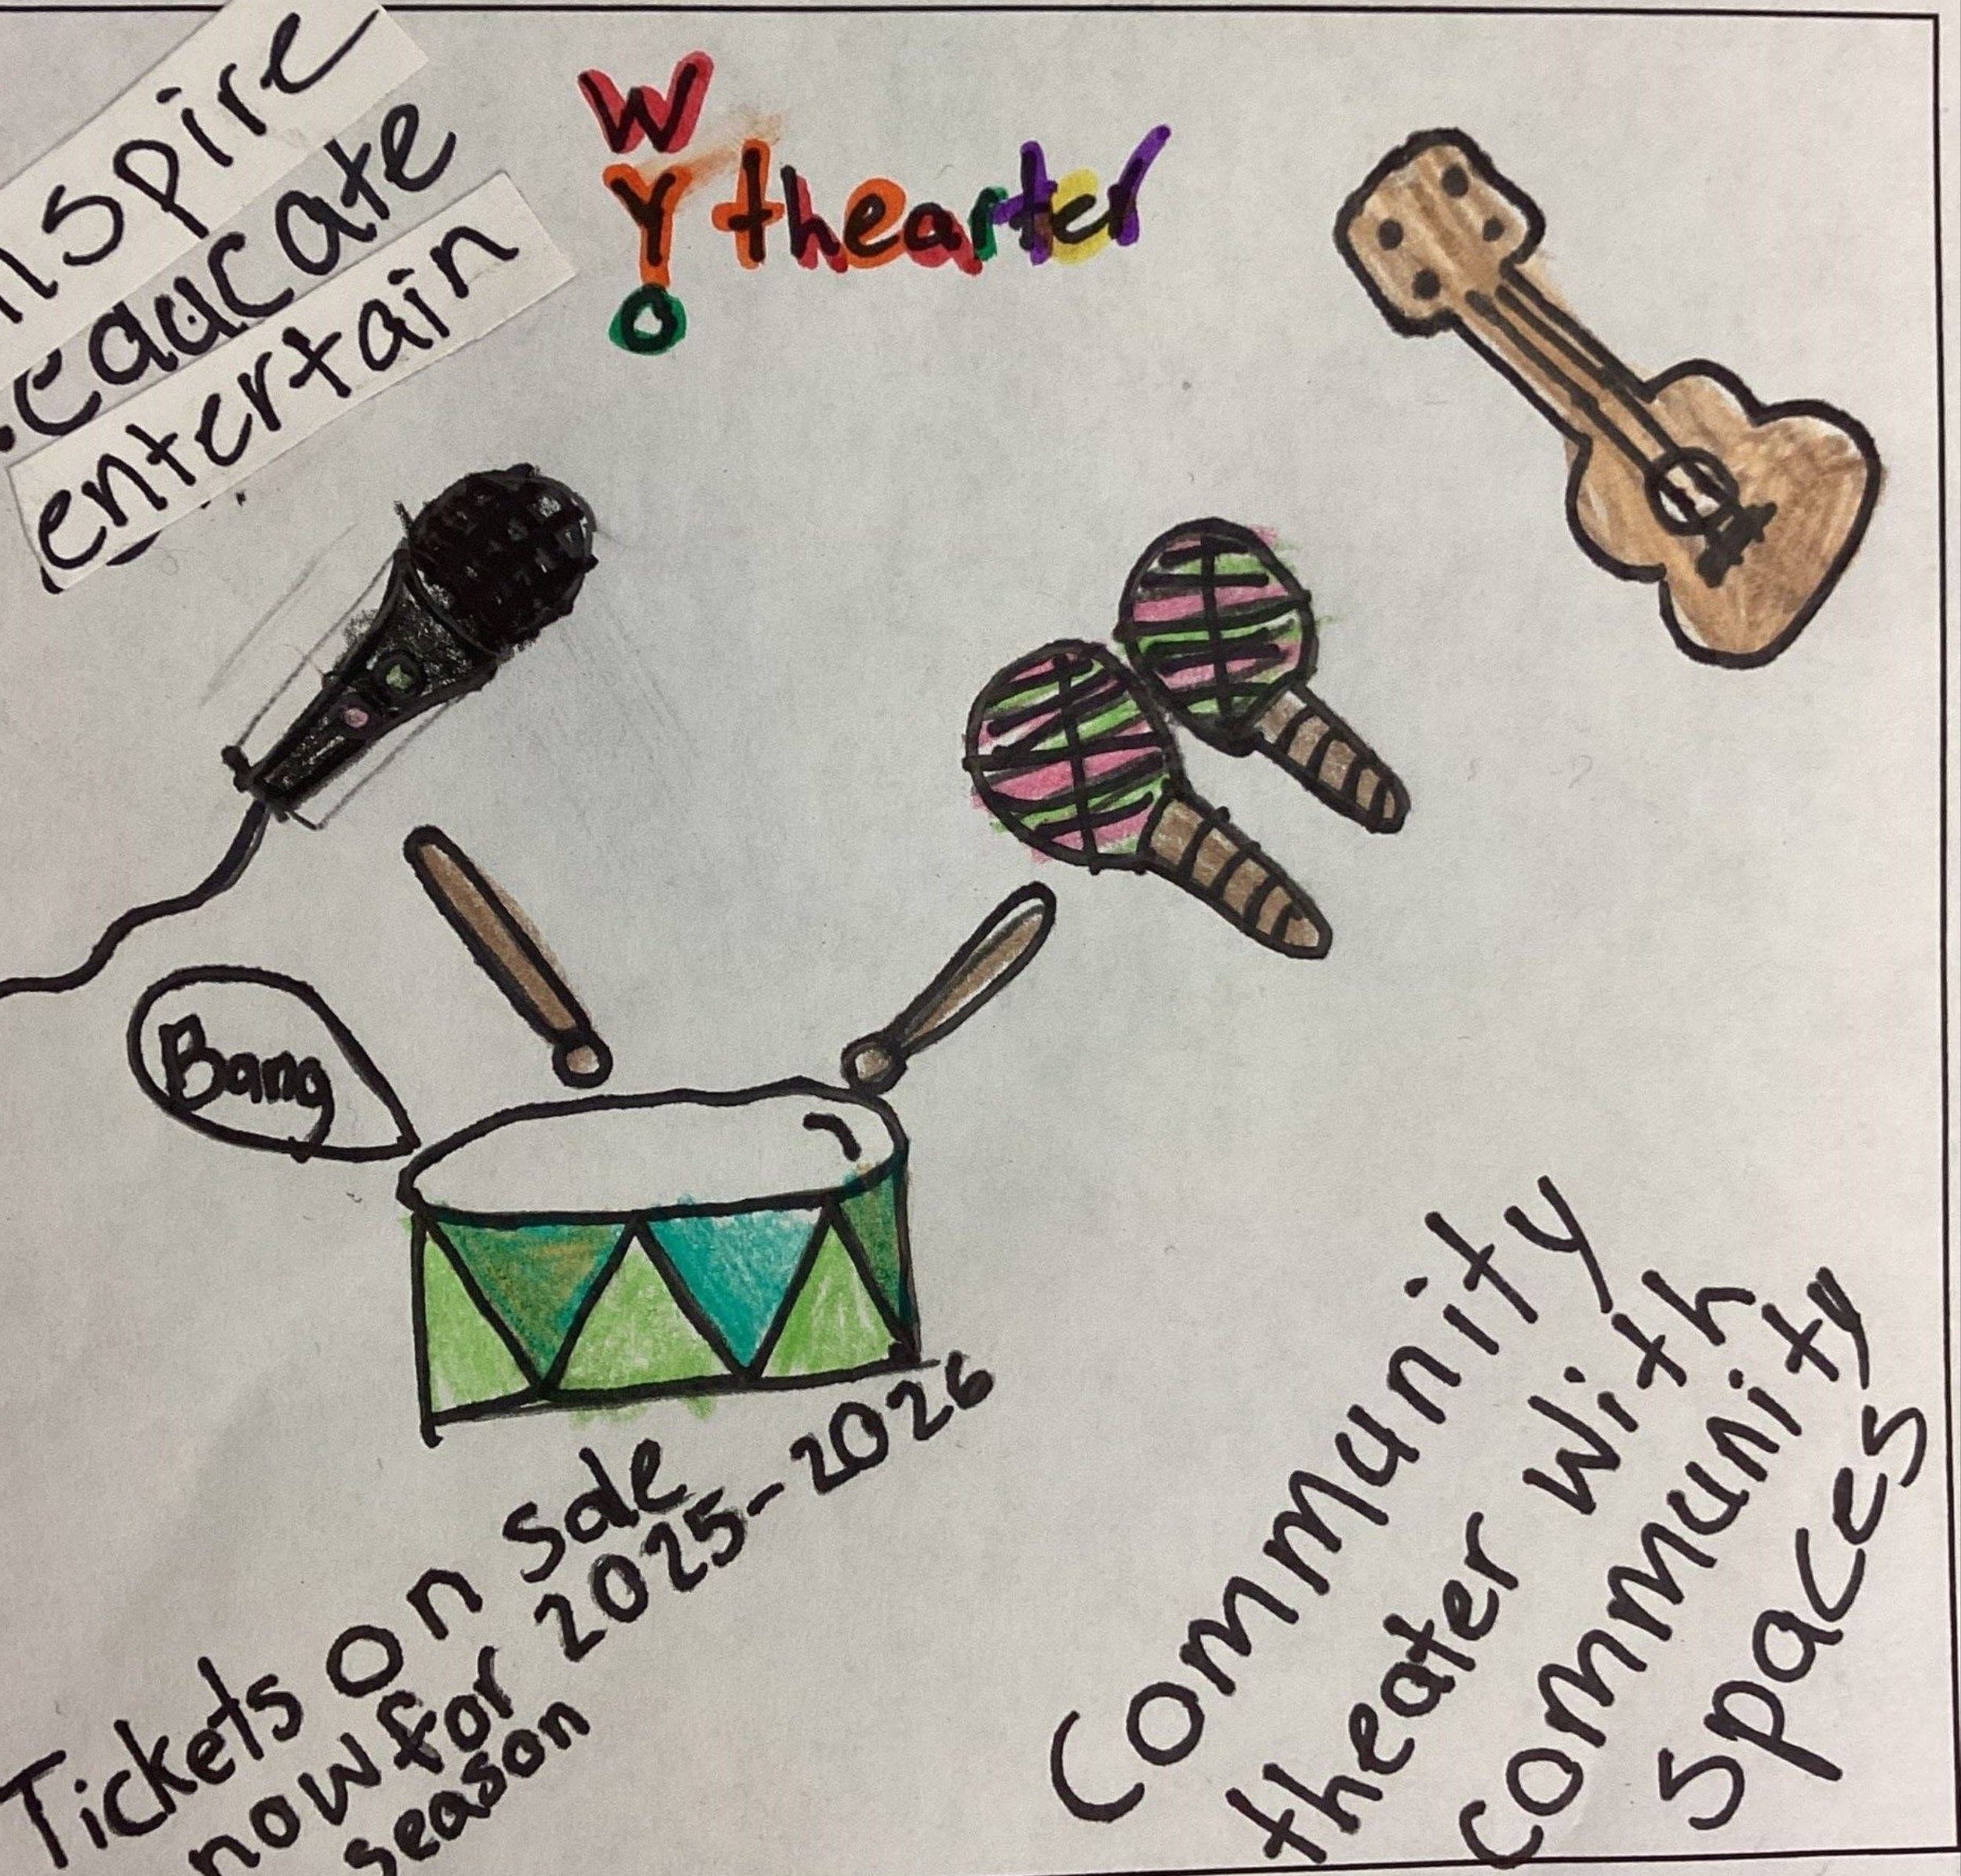 nspire
educate
entertain
W
Y thearter
O
Bang
Tickets on sale
now for 2025-2026
season
Community
theater with
community
spaces